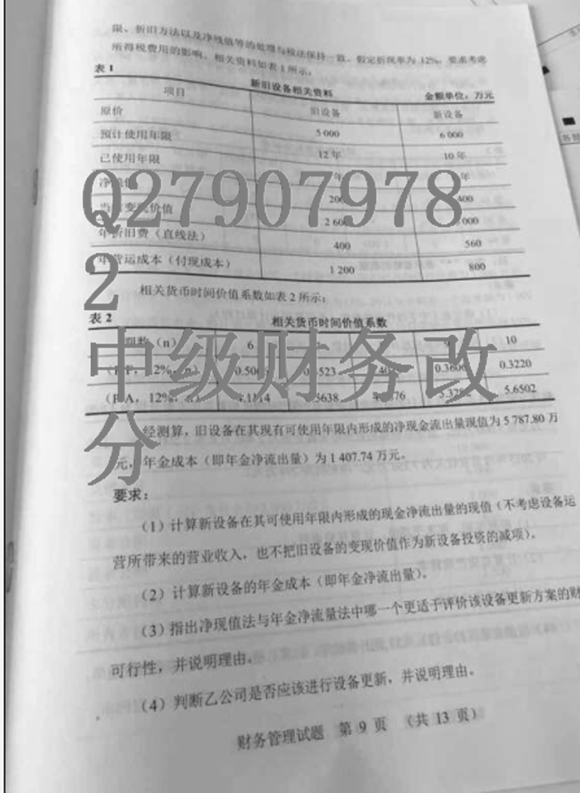 限、折旧方法以及净残值等的处理与税法保持一致,假定折现率为 12%,要求考虑
所得税费用的影响。相关资料如表 1 所示:
表 1 新旧设备相关资料 金额单位:万元
项目 旧设备 新设备
原价 5 000 6 000
预计使用年限 12 年 10 年
已使用年限 年 年
净 值 200 400
当 变现价值 2 600 000
年折旧费(直线法) 400 560
年营运成本(付现成本) 1 200 800
相关货币时间价值系数如表 2 所示:
表 2 相关货币时间价值系数
期数(n) 6 9 10
12% 0.3606 0.3220
12% 5.6502
经测算,旧设备在其现有可使用年限内形成的净现金流出量现值为 5 787.80 万
元,年金成本(即年金净流出量)为 1 407.74 万元。
要求:
(1)计算新设备在其可使用年限内形成的现金净流出量的现值(不考虑设备运
营所带来的营业收入,也不把旧设备的变现价值作为新设备投资的减项)。
(2)计算新设备的年金成本(即年金净流出量)。
(3)指出净现值法与年金净流量法中哪一个更适于评价该设备更新方案的财
可行性,并说明理由。
(4)判断乙公司是否应该进行设备更新,并说明理由。
财务管理试题 第 9 页 (共 13 页)
Q27907978
2
中级财务改
分